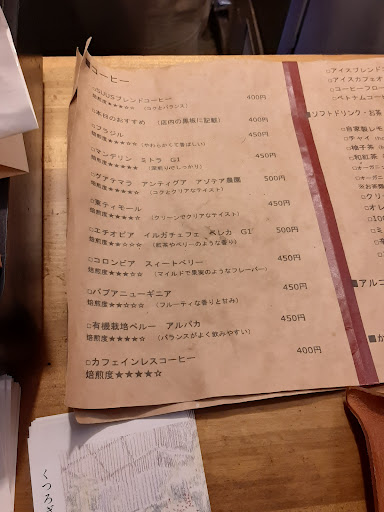 コーヒー
□SUUSブレンドコーヒー 400円
焙煎度★★★★☆ (コクとバランス)
□本日のおすすめ (店内の黒板に記載) 400円
□ブラジル 450円
焙煎度★★★☆☆ (やわらかくて香ばしい)
□マンデリン ミトラ G1 450円
焙煎度★★★★★
□グアテマラ アンティグア アゾテア農園 500円
焙煎度★★★★☆ (コクとクリアなテイスト)
□東ティモール 450円
焙煎度★★★★☆ (クリーンでクリアなテイスト)
□エチオピア イルガチェフェ ベレカ G1 500円
焙煎度★★☆☆☆ (紅茶やベリーのような香り)
□コロンビア スイートベリー 450円
焙煎度★★★☆☆ (マイルドで果実のようなフレーバー)
□パプアニューギニア 450円
焙煎度★★★☆☆ (フルーティな香りと甘み)
□有機栽培ペルー アルパカ 450円
焙煎度★★★★☆ (バランスがよく飲みやすい)
□カフェインレスコーヒー 400円
焙煎度★★★★☆
□アイスブレンド
□アイスカフェオ
□コーヒーフロー
□ベトナムコー
■ソフトドリンク・お茶
□自家製レモ
□チャイ
□柚子茶
□和紅茶
□オーガニ
※お茶
□クリ
□オレ
□10
■アルコ
■か
くつろぎ